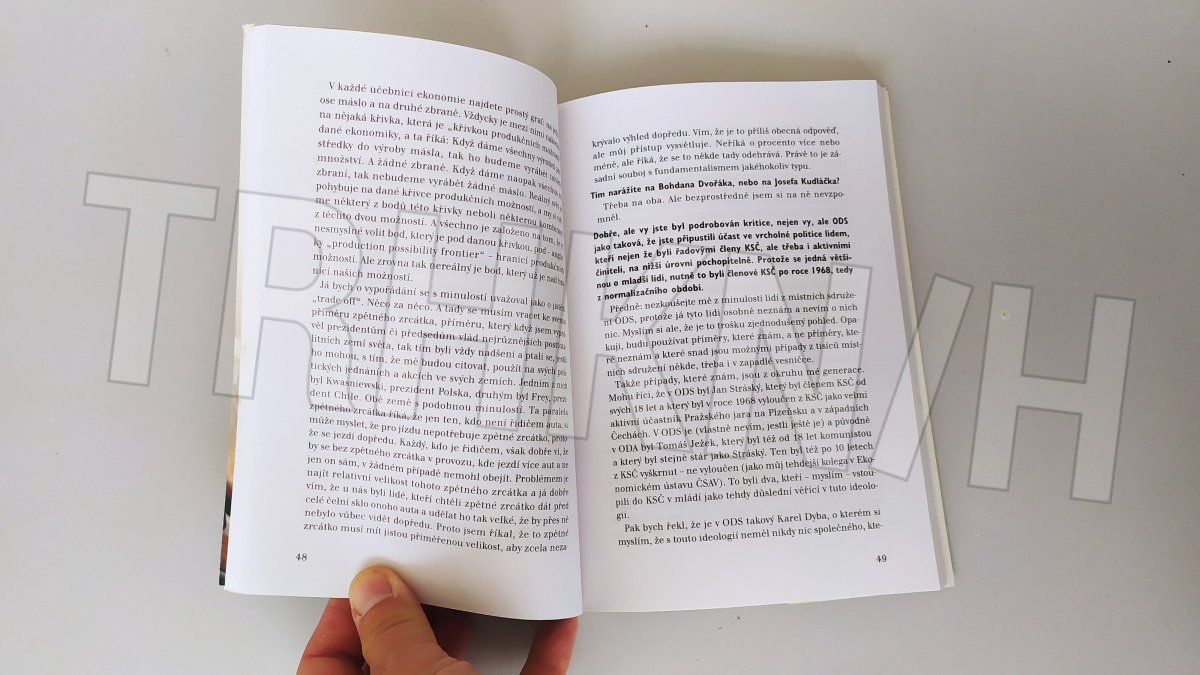 V každé učebnici ekonomie najdete prostý graf: na
ose máslo a na druhé zbraně. Vždycky je mezi nimi
na nějaká křivka, která je „křivkou produkčních možností
dané ekonomiky, a ta říká: Když dáme všechny výrobní
středky do výroby másla, tak ho budeme vyrábět
množství. A žádné zbraně. Když dáme naopak všechno
zbraní, tak nebudeme vyrábět žádné máslo. Reálný svět
pohybuje na dané křivce produkčních možností, a my si
me některý z bodů této křivky neboli některou
z těchto dvou možností. A všechno je založeno na tom, že
nesmyslné volit bod, který je pod danou křivkou, pod
ky „production possibility frontier“ – hranicí produkčních
možností. Ale zrovna tak nereálný je bod, který už je nad
nicí našich možností.
Já bych o vypořádání se s minulostí uvažoval jako o
„trade off“. Něco za něco. A tady se musím vracet ke
příměru zpětného zrcátka, příměru, který když jsem
věl prezidentům či předsedům vlád nejrůznějších
litních zemí světa, tak tím byli vždy nadšeni a ptali se, jestli
ho mohou, s tím, že mě budou citovat, použít na svých poli-
tických jednáních a akcích ve svých zemích. Jedním z nich
byl Kwasniewski, prezident Polska, druhým byl Frey, prezi-
dent Chile. Obě země s podobnou minulostí. Ta paralela
zpětného zrcátka říká, že jen ten, kdo není řidičem auta, si
může myslet, že pro jízdu nepotřebuje zpětné zrcátko, proto
že se jezdí dopředu. Každý, kdo je řidičem, však dobře ví, že
by se bez zpětného zrcátka v provozu, kde jezdí více aut a ne
jen on sám, v žádném případě nemohl obejít. Problémem je
najít relativní velikost tohoto zpětného zrcátka a já dobře
vím, že u nás byli lidé, kteří chtěli zpětné zrcátko dát před
celé čelní sklo onoho auta a udělat ho tak velké, že by přes ně
nebylo vůbec vidět dopředu. Proto jsem říkal, že to zpětné
zrcátko musí mít jistou přiměřenou velikost, aby zcela neza-
48
krývalo výhled dopředu. Vím, že je to příliš obecná odpověď,
ale můj přístup vysvětluje. Neříká o procento více nebo
méně, ale říká, že se to někde tady odehrává. Právě to je zá-
sadní souboj s fundamentalismem jakéhokoliv typu.
Tím narážíte na Bohdana Dvořáka, nebo na Josefa Kudláčka?
Třeba na oba. Ale bezprostředně jsem si na ně nevzpo-
mněl.
Dobře, ale vy jste byl podrobován kritice, nejen vy, ale ODS
jako taková, že jste připustili účast ve vrcholné politice lidem,
kteří nejen že byli řadovými členy KSČ, ale třeba i aktivními
činiteli, na nižší úrovni pochopitelně. Protože se jedná větši-
nou o mladší lidi, nutně to byli členové KSČ po roce 1968, tedy
z normalizačního období.
Předně: nezkoušejte mě z minulosti lidí z místních sdruže-
ní ODS, protože já tyto lidi osobně neznám a nevím o nich
nic. Myslím si ale, že je to trošku zjednodušený pohled. Opa-
kuji, budu používat příměry, které znám, a ne příměry, kte-
ré neznám a které snad jsou možnými případy z tisíců míst-
ních sdružení někde, třeba i v zapadlé vesničce.
Takže případy, které znám, jsou z okruhu mé generace.
Mohu říci, že v ODS byl Jan Stráský, který byl členem KSČ od
svých 18 let a který byl v roce 1968 vyloučen z KSČ jako velmi
aktivní účastník Pražského jara na Plzeňsku a v západních
Čechách. V ODS je (vlastně nevím, jestli ještě je) a původně
v ODA byl Tomáš Ježek, který byl též od 18 let komunistou
a který byl stejně stár jako Stráský. Ten byl též po 10 letech
z KSČ vyškrtnut – ne vyloučen (jako můj tehdejší kolega v Eko
nomickém ústavu ČSAV). To byli dva, kteří – myslím – vstou-
pili do KSČ v mládí jako tehdy důslední věřící v tuto ideolo-
gii.
Pak bych řekl, že je v ODS takový Karel Dyba, o kterém si
myslím, že s touto ideologií neměl nikdy nic společného, kte-
49